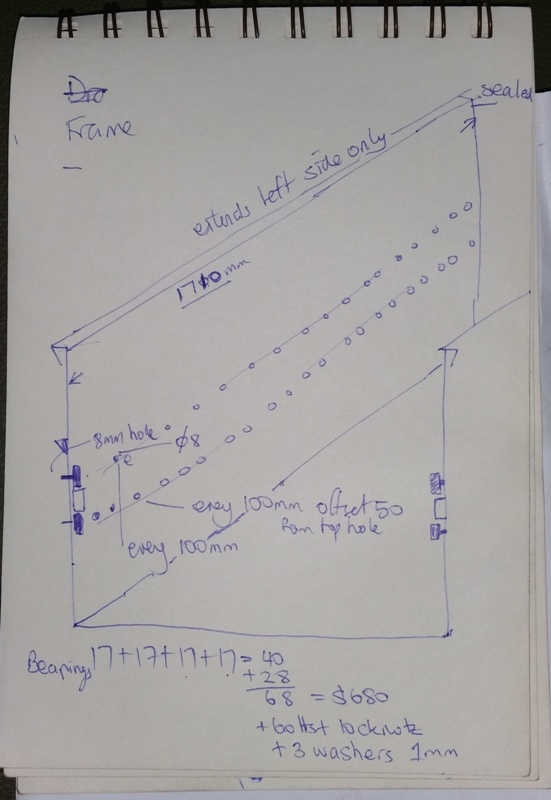 Frame
sealed
extends left side only
1710mm
8mm hole φ8
e
every 100mm offset 50
from top hole
every 100mm
Bearings 17+17+17+17 = 40
+28
68 = $680
+bolts+ locknutz
+3 washers 1mm